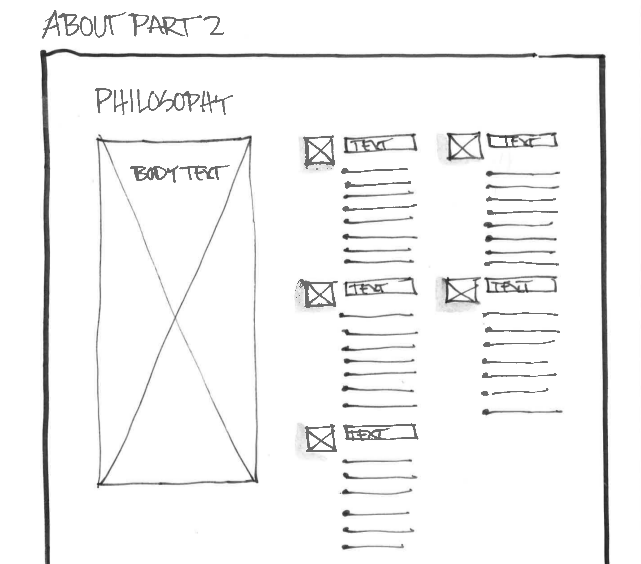 ABOUT PART 2
PHILOSOPHY
BODY TEXT
TEXT
TEXT
TEXT
TEXT
TEXT